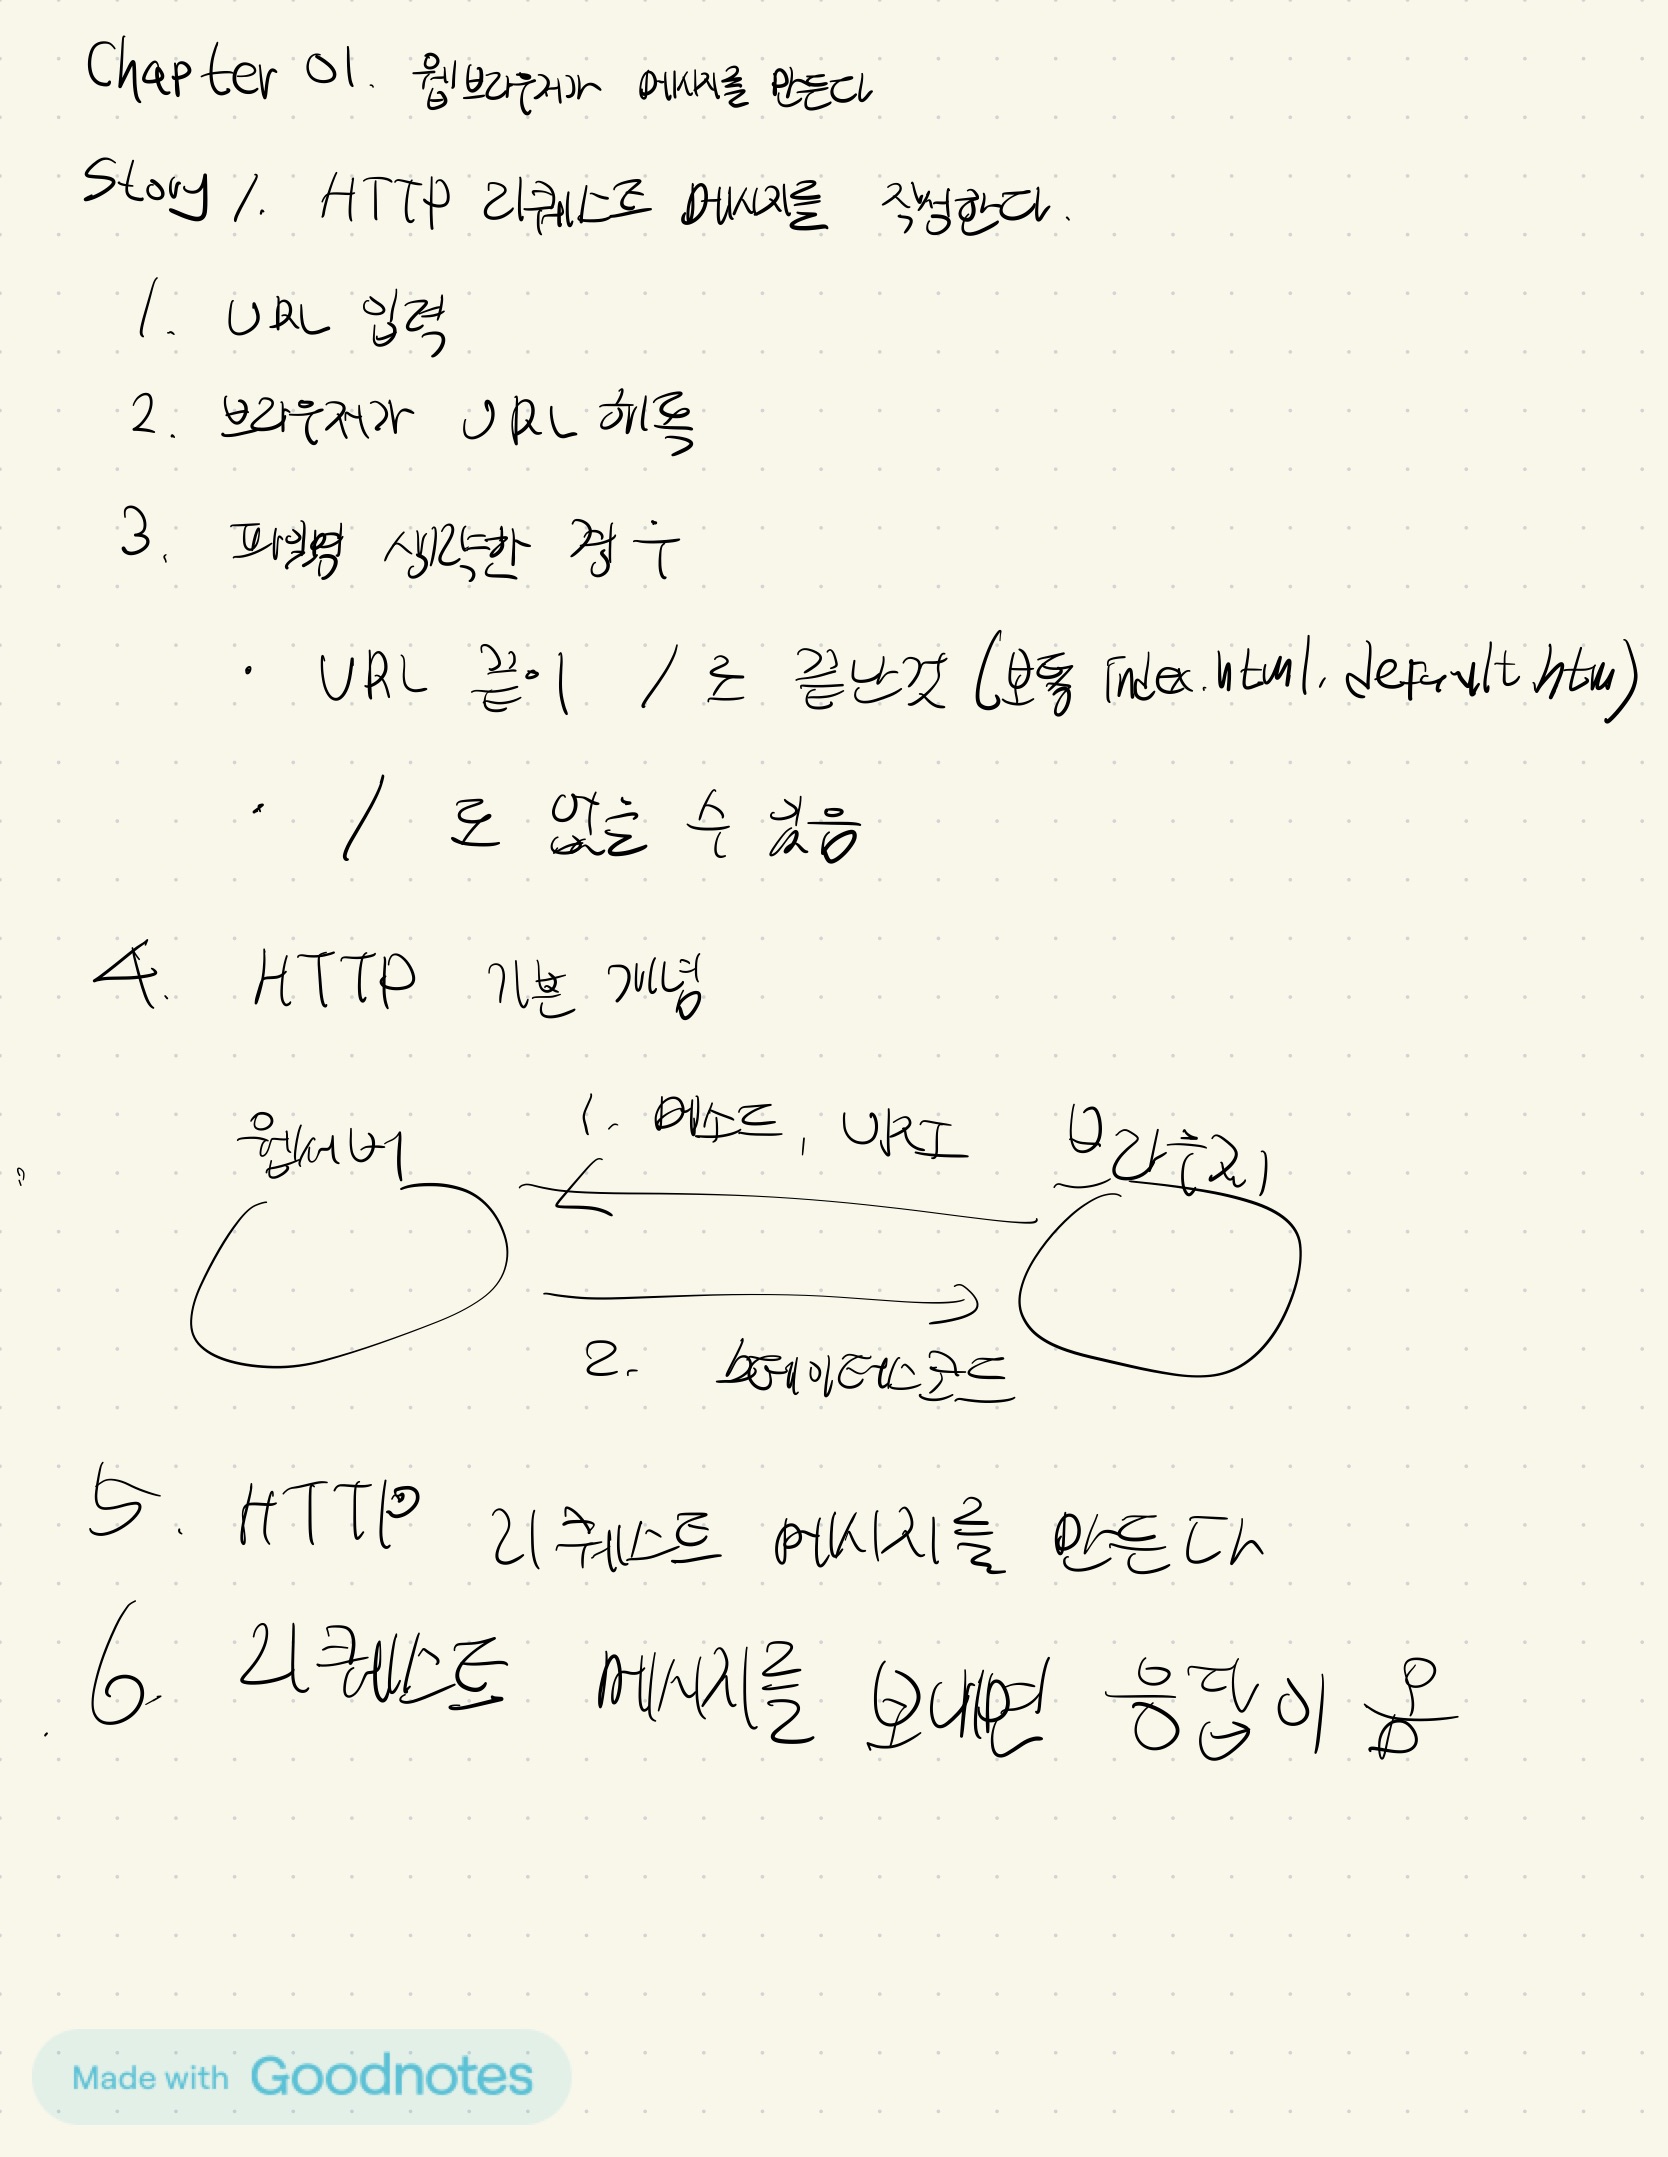 Chapter 01. 웹브라우저가 메시지를 만든다
Story 1. HTTP 리퀘스트 메시지를 작성한다.
1. URL 입력
2. 브라우저가 URL 해독
3. 파일명 생략한 경우
· URL 끝이 / 로 끝난것 (보통 index.html, default.htm)
· / 로 없을 수 있음
4. HTTP 기본 개념
웹서버 1. 메소드, URI 브라우저
2. 스테이터스코드
5. HTTP 리퀘스트 메시지를 만든다
6. 리퀘스트 메시지를 보내면 응답이 옴
Made with Goodnotes